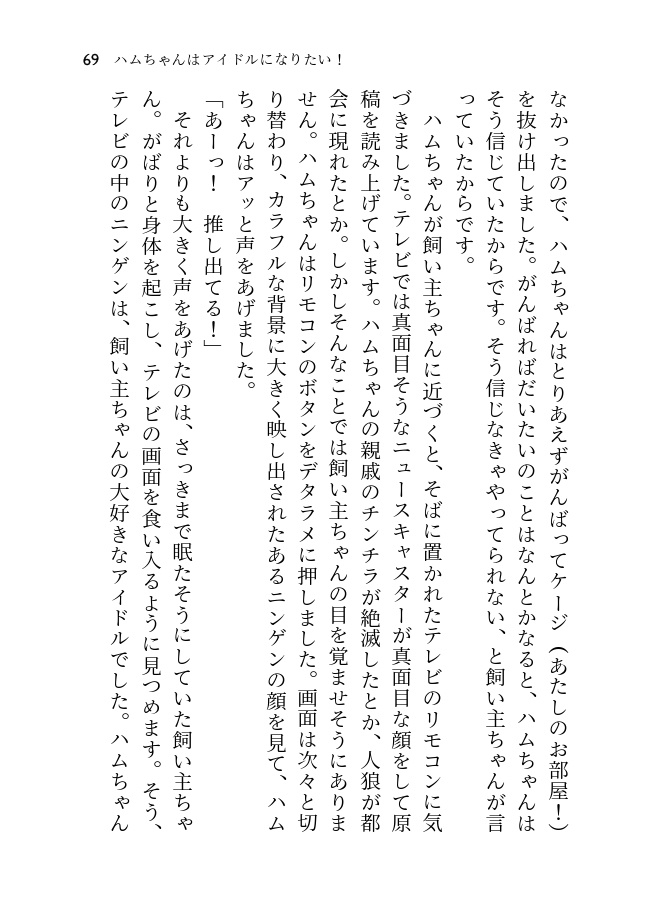 69 ハムちゃんはアイドルになりたい！
なかったので、ハムちゃんはとりあえずがんばってケージ（あたしのお部屋！）
を抜け出しました。がんばればだいたいのことはなんとかなると、ハムちゃんは
そう信じていたからです。そう信じなきゃやってられない、と飼い主ちゃんが言
っていたからです。
ハムちゃんが飼い主ちゃんに近づくと、そばに置かれたテレビのリモコンに気
づきました。テレビでは真面目そうなニュースキャスターが真面目な顔をして原
稿を読み上げています。ハムちゃんの親戚のチンチラが絶滅したとか、人狼が都
会に現れたとか。しかしそんなことでは飼い主ちゃんの目を覚ませそうにありま
せん。ハムちゃんはリモコンのボタンをデタラメに押しました。画面は次々と切
り替わり、カラフルな背景に大きく映し出されたあるニンゲンの顔を見て、ハム
ちゃんはアッと声をあげました。
「あーっ！　推し出てる！」
それよりも大きく声をあげたのは、さっきまで眠たそうにしていた飼い主ちゃ
ん。がばりと身体を起こし、テレビの画面を食い入るように見つめます。そう、
テレビの中のニンゲンは、飼い主ちゃんの大好きなアイドルでした。ハムちゃん